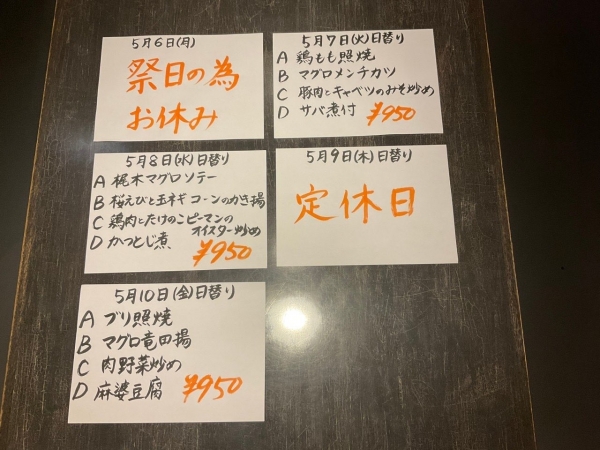 5月6日(月)
祭日の為
お休み
5月7日(火)日替り
A 鶏もも照焼
B マグロメンチカツ
C 豚肉とキャベツのみそ炒め
D サバ煮付 ¥950
5月8日(水)日替り
A 梶木マグロソテー
B 桜えびと玉ネギコーンのかき揚
C 鶏肉とたけのこピーマンの
オイスター炒め
D かつとじ煮 ¥950
5月9日(木)日替り
定休日
5月10日(金)日替り
A ブリ照焼
B マグロ竜田揚
C 肉野菜炒め
D 麻婆豆腐 ¥950